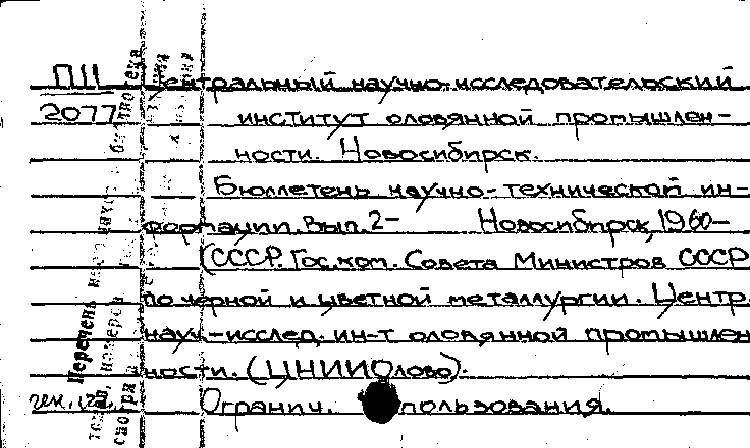 П11 Центральный научно-исследовательский
2077 институт оловянной промышлен-
ности. Новосибирск.
Бюллетень научно-технической ин-
формации. Вып. 2- Новосибирск, 1960-
(СССР. Гос. ком. Совета Министров СССР
по черной и цветной металлургии. Центр.
науч.-исслед. ин-т оловянной промышлен
ности. (ЦНИИОлово).
Огранич. пользования.
Перечень
номеров
смотри